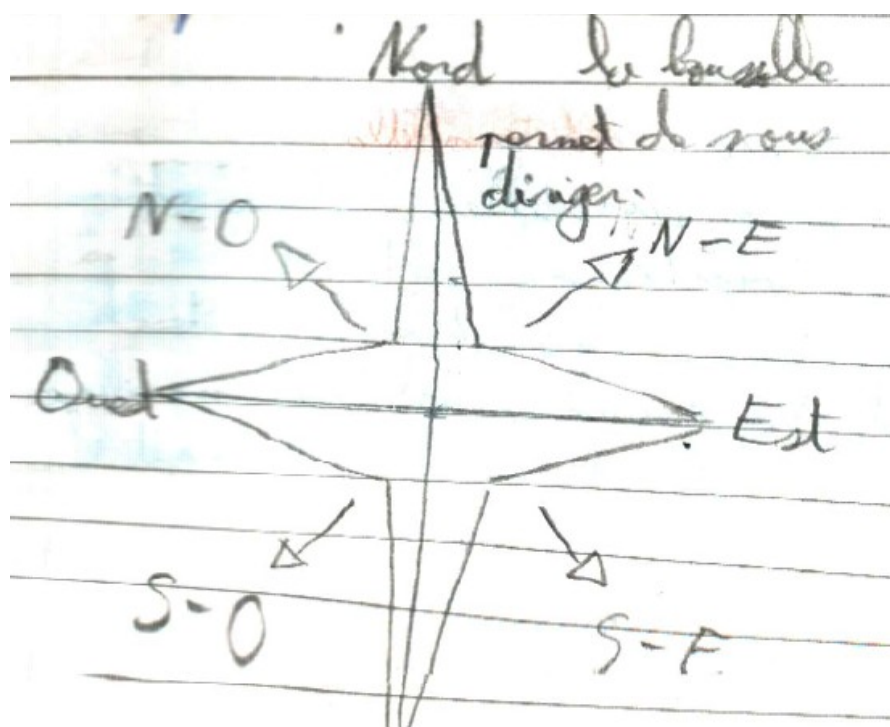 Nord la boussole
permet de nous
diriger.
N-O
N-E
Ouest
Est
S-O
S-E